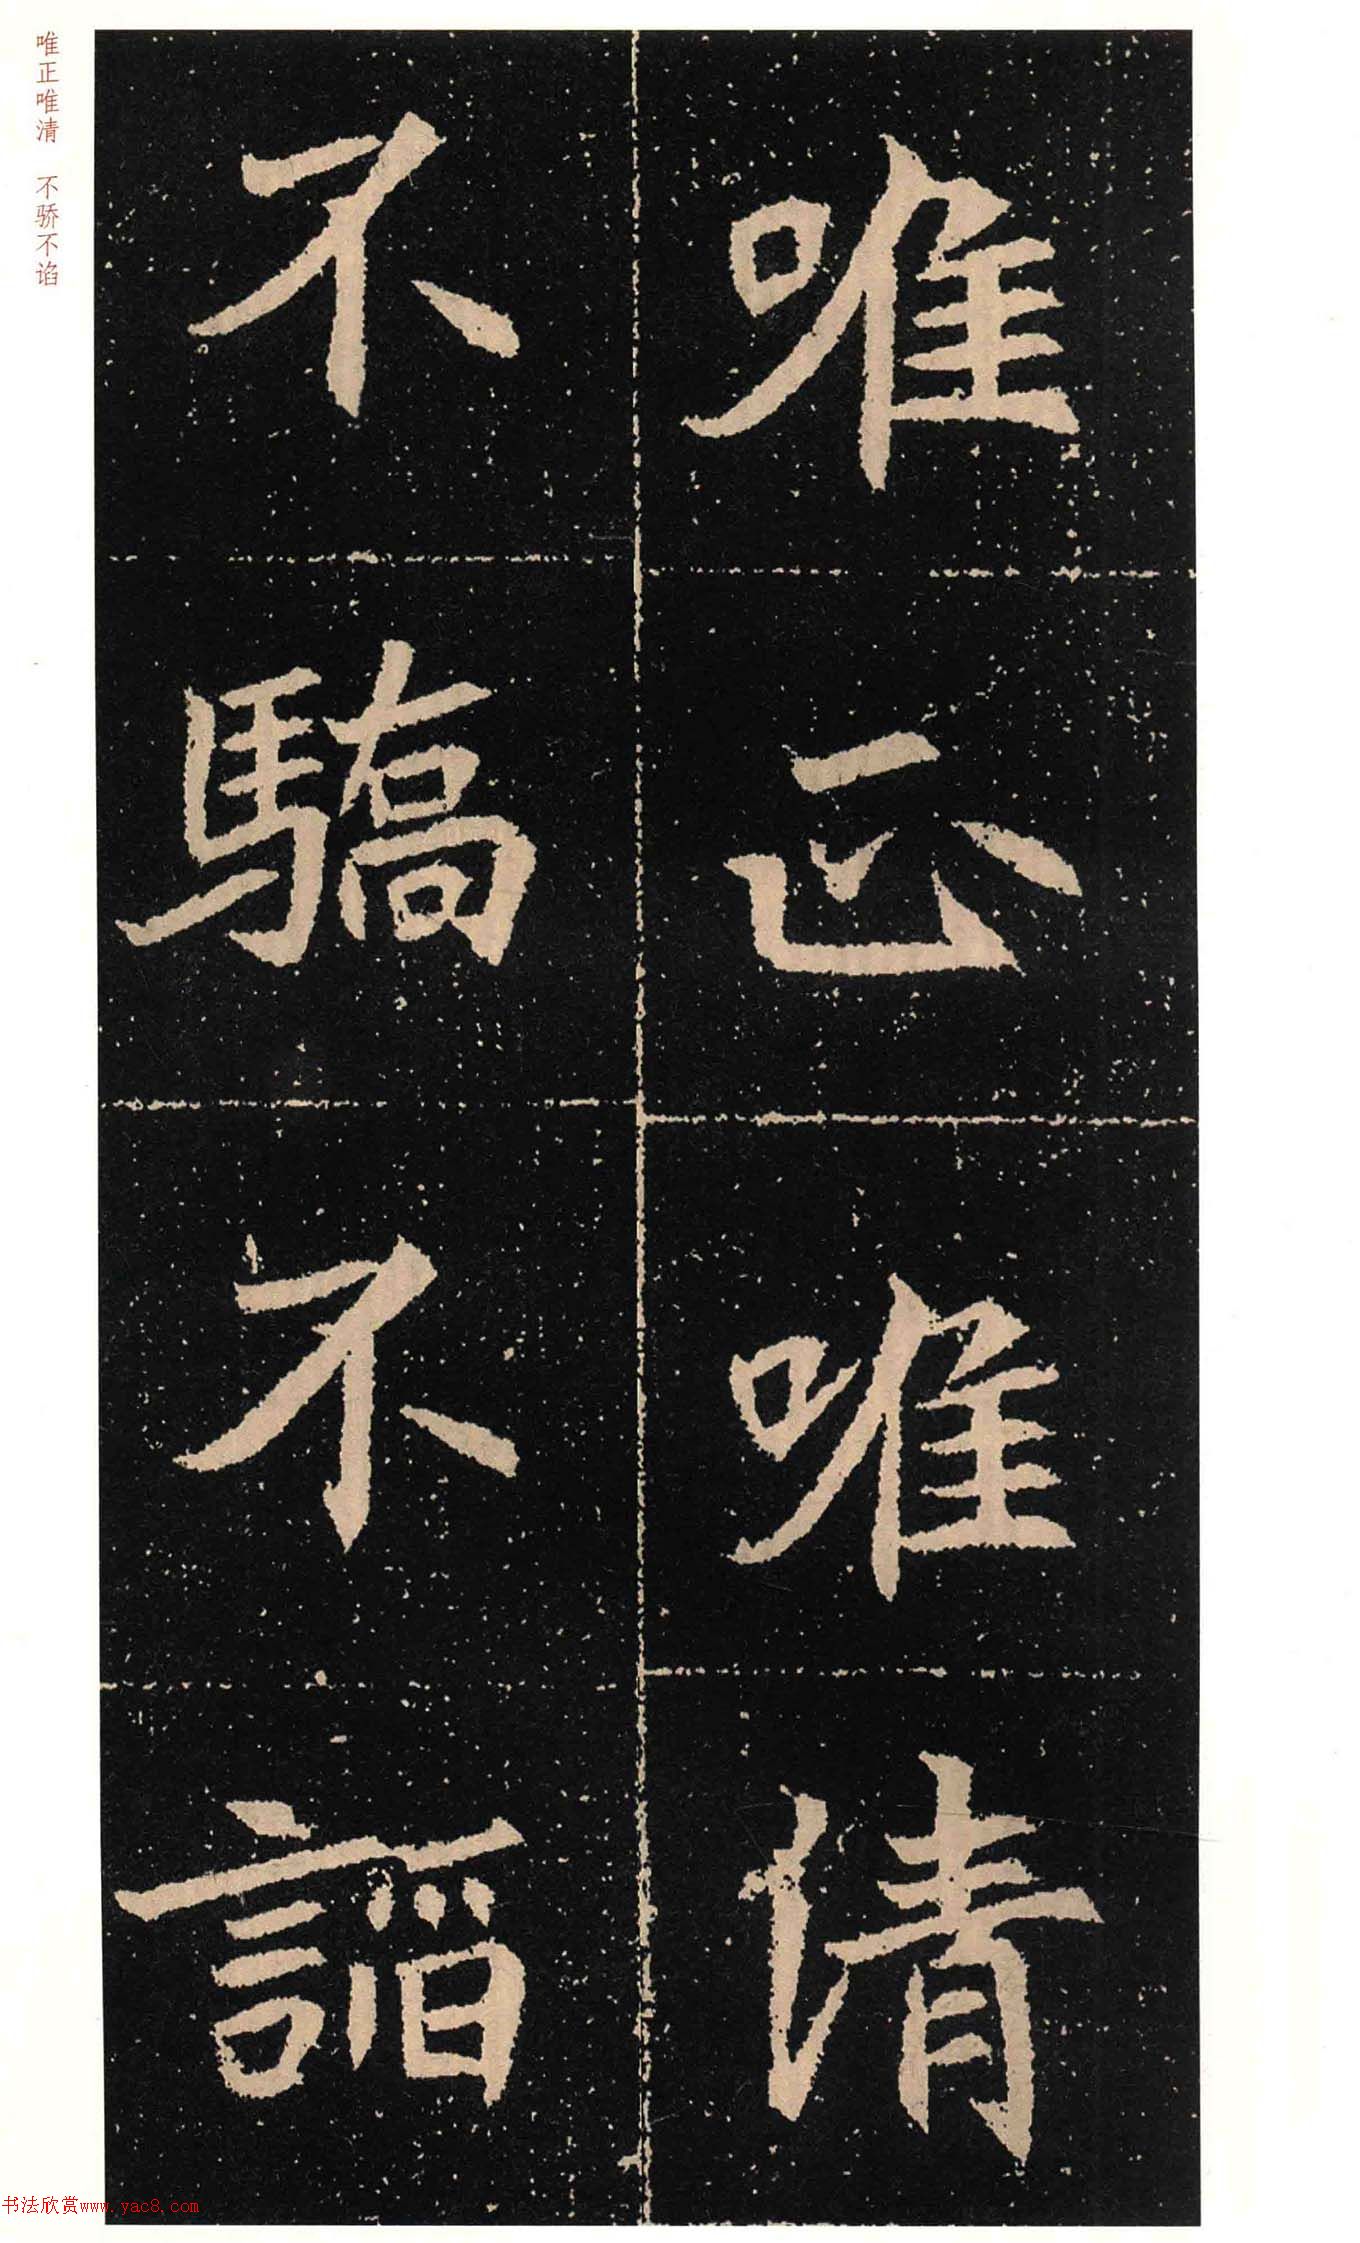 唯正唯清
不驕不諂
唯正唯清 不骄不谄
书法欣赏www.yac8.com